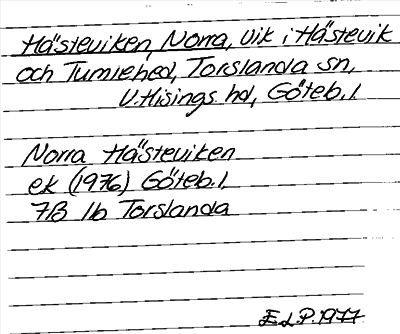 Hästeviken, Norra, vik i Hästevik
och Tumlehed, Torslanda sn,
V.Hisings hd, Göteb.l.
Norra Hästeviken
ek (1976) Göteb.l.
7B 1b Torslanda
E.L.P. 1977